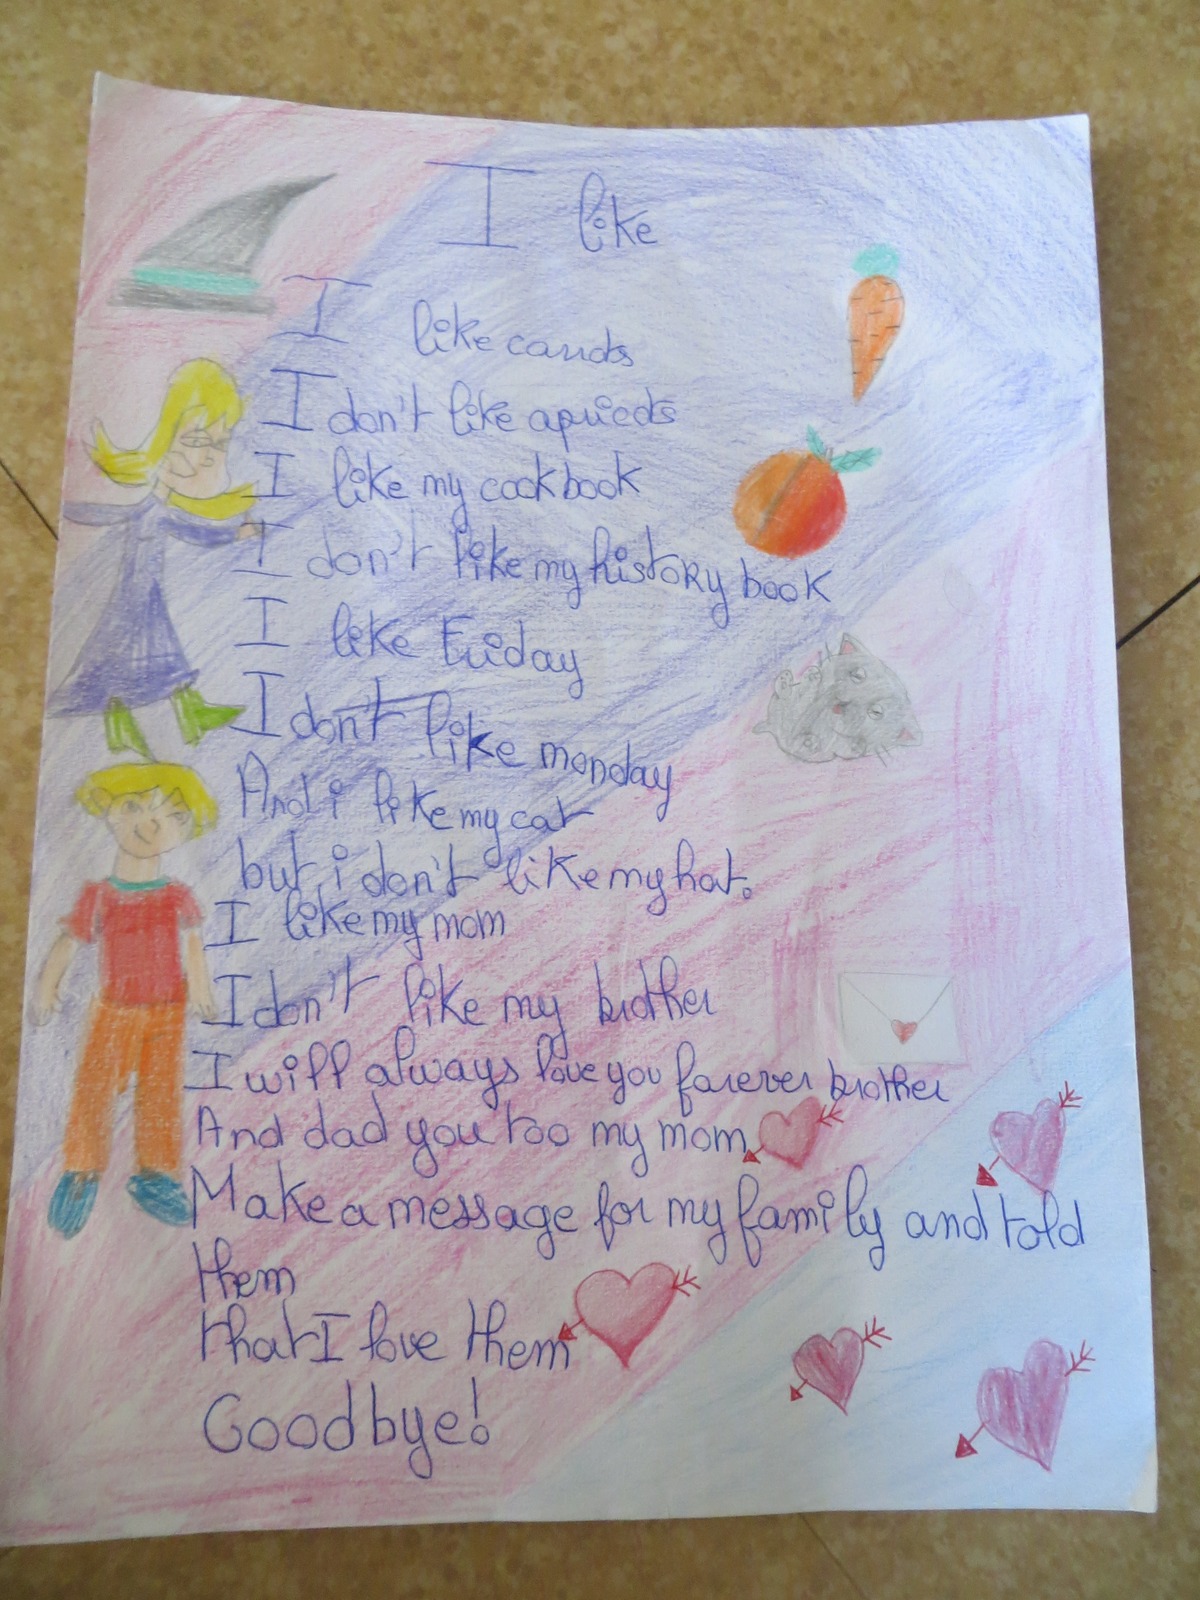 I like
I like carrots
I don't like apricots
I like my cookbook
I don't like my history book
I like Friday
I don't like monday
And i like my cat
but i don't like my hat.
I like my mom
I don't like my brother
I will always love you forever brother
And dad you too my mom
Make a message for my family and told
them
that I love them
Goodbye!